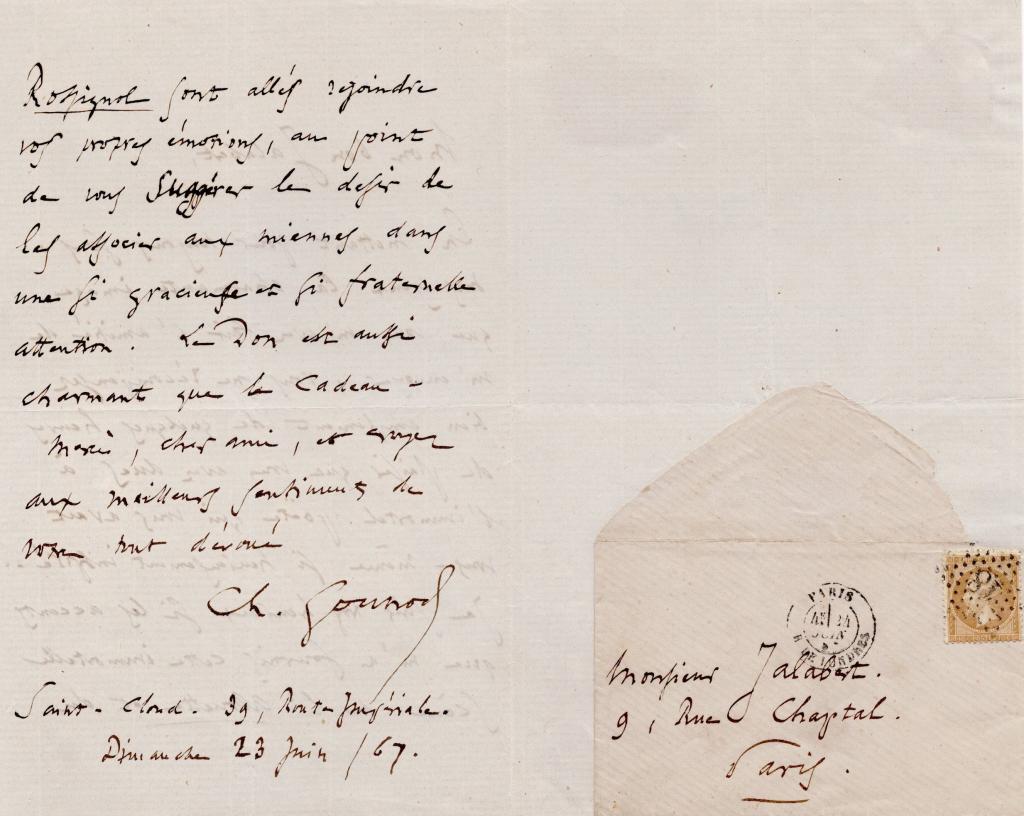 Rossignol sont allés rejoindre
vos propres émotions, au point
de vous suggérer le desir de
les associer aux miennes dans
une si gracieuse et si fraternelle
attention. Le Don est aussi
charmant que le Cadeau -
Merci, cher ami, et croyez
aux meilleurs sentiments de
votre tout dévoué
Ch. Gounod
Saint-Cloud. 39, Route Impériale.
Dimanche 23 Juin /67.
PARIS
24
JUIN
R. DE LONDRES
Monsieur Jalabert.
9, Rue Chaptal.
Paris.